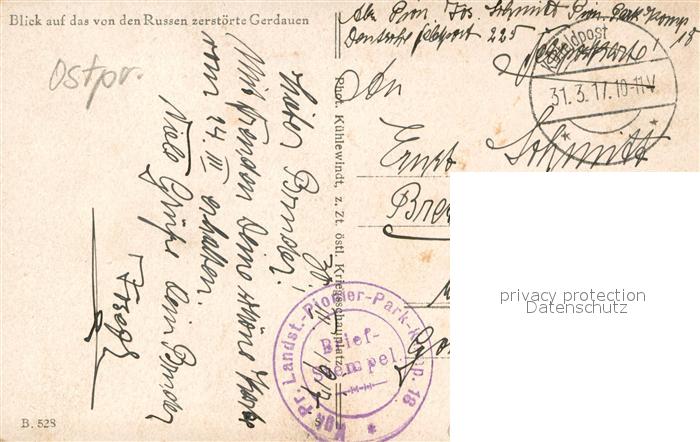 Blick auf das von den Russen zerstörte Gerdauen
Ostpr.
Abs. Pion. Jos. Schmitt Pion. Park Komp. 18
Deutsche Feldpost 225
Feldpostkarte!
Feldpost
31.3.17.10-11V
An
Ernst Schmitt
Bre
30. III. 1917
Lieber Bruder!
Mit Freuden Deine schöne Karte
vom 24. III erhalten.
Viele Grüße Dein Bruder
Josef
Phot. Kühlewindt, z. Zt. östl. Kriegsschauplatz
Kgl. Pr. Landst.-Pionier-Park-Komp. 18
Brief-
Stempel.
B. 528
privacy protection
Datenschutz